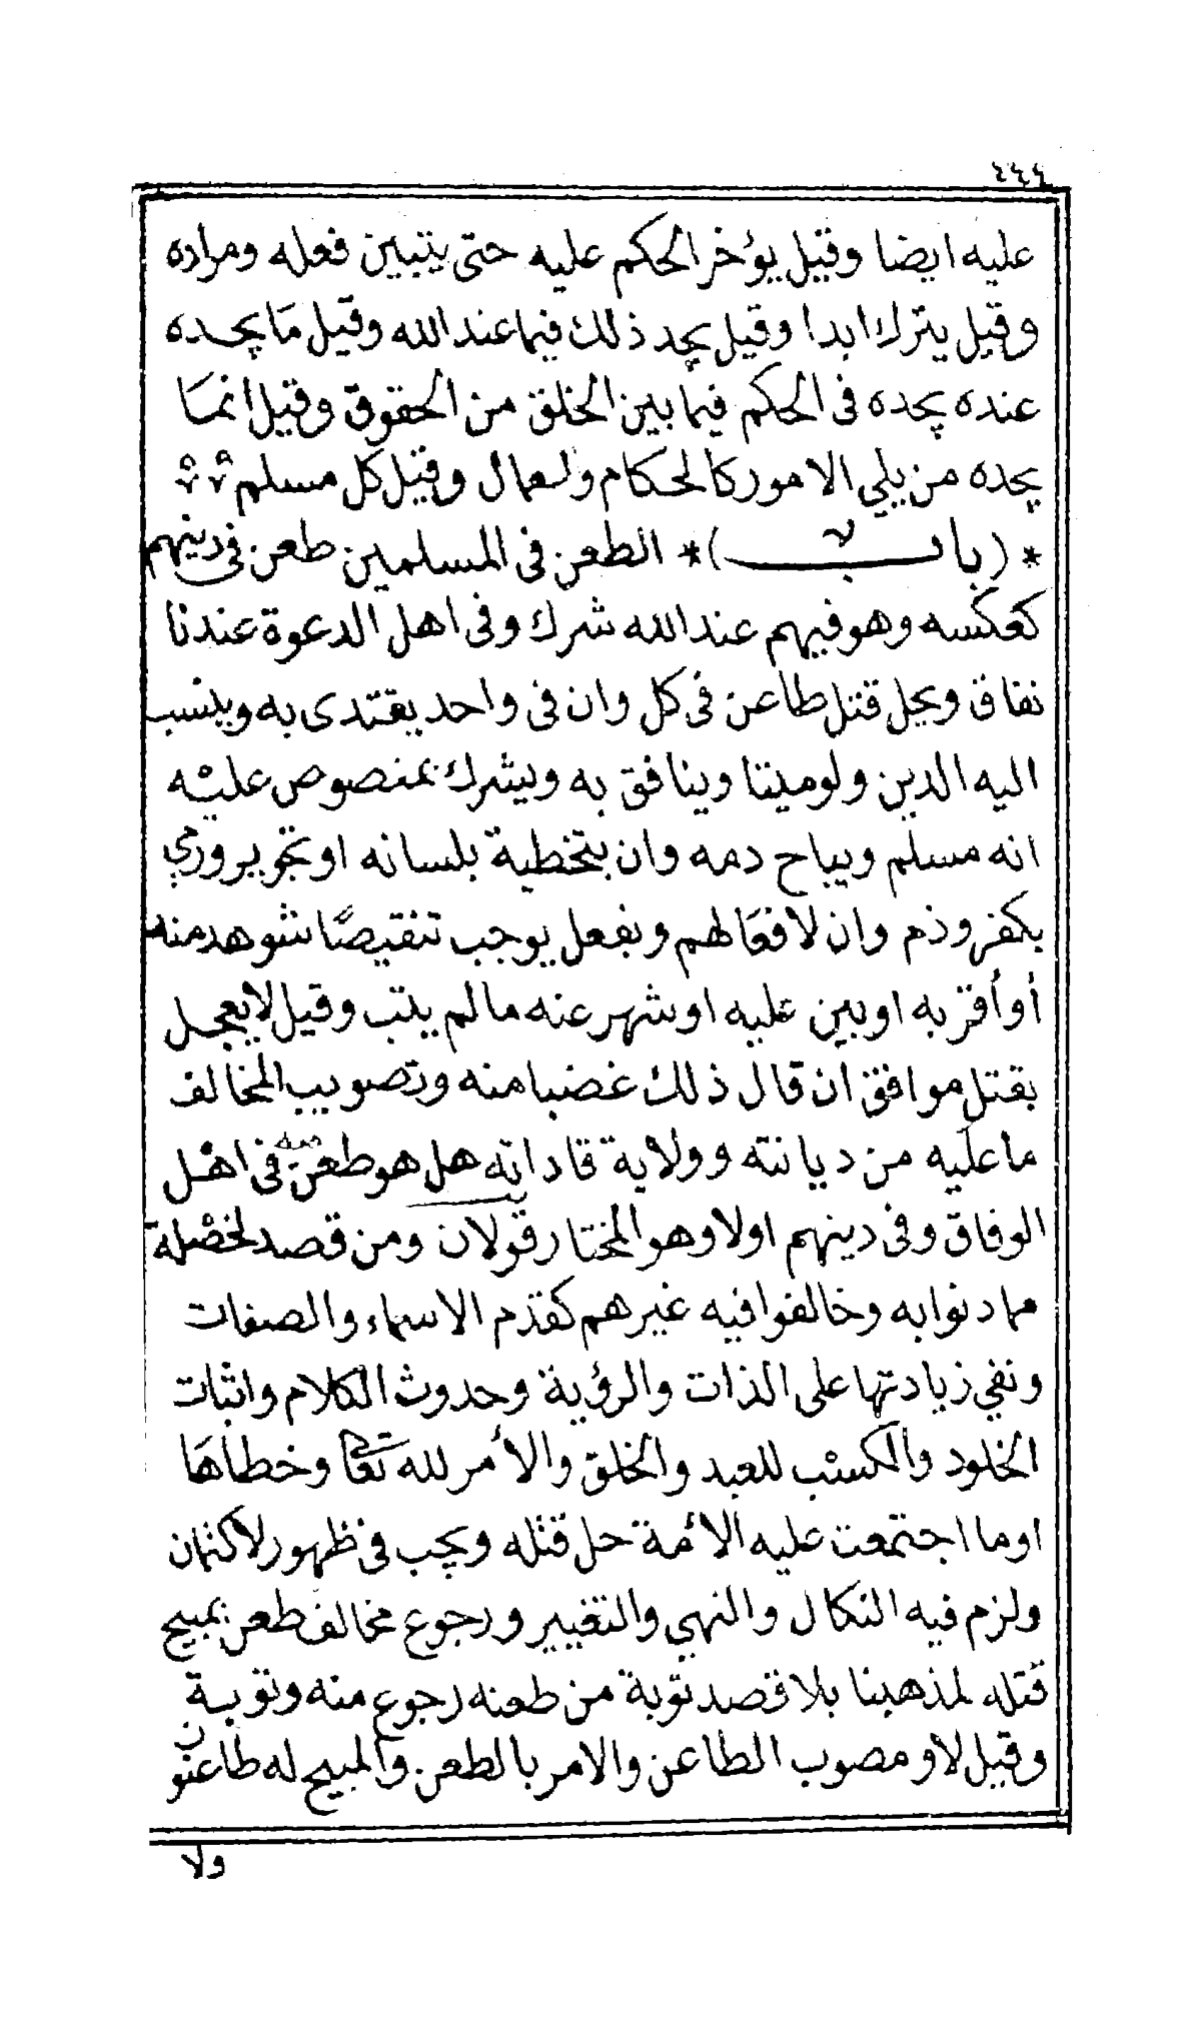 ٤٤٤
عليه ايضا وقيل يؤخر الحكم عليه حتى يتبين فعله ومراده
وقيل يترك ابدا وقيل يجد ذلك فيما عند الله وقيل ما يجده
عنده يجده فى الحكم فيما بين الخلق من الحقوق وقيل انما
يجده من يلي الامور كالحكام والعمال وقيل كل مسلم
* (باب) * الطعن فى المسلمين طعن فى دينهم
كعكسه وهو فيهم عند الله شرك وفى اهل الدعوة عندنا
نفاق ويحل قتل طاعن فى كل وان فى واحد يقتدى به وينسب
اليه الدين ولو ميتا وينافق به ويشرك بمنصوص عليه
انه مسلم ويباح دمه وان بتخطية بلسانه او تجوير ورمي
بكفر وذم وان لافعالهم وبفعل يوجب تنقيصًا شوهد منه
أو أقر به او بين عليه او شهر عنه ما لم يتب وقيل لا يعجل
بقتل موافق ان قال ذلك غضبا منه وتصويب المخالف
ما عليه من ديانته وولاية قاداته هل هو طعن منه فى اهل
الوفاق وفى دينهم اولا وهو المختار قولان ومن قصد لخصلة
مما دنوا به وخالفوا فيه غيرهم كقدم الاسماء والصفات
ونفي زيادتها على الذات والرؤية وحدوث الكلام واثبات
الخلود والكسب للعبد والخلق والأمر لله تعا وخطاها
او ما اجتمعت عليه الائمة حل قتله ويجب فى ظهور لا كتمان
ولزم فيه النكال والنهي والتغيير ورجوع مخالف طعن بمبيح
قتله لمذهبنا بلا قصد توبة من طعنه رجوع منه وتوبة
وقيل لا ومصوب الطاعن والامر بالطعن والمبيح له طاعنون
ولا